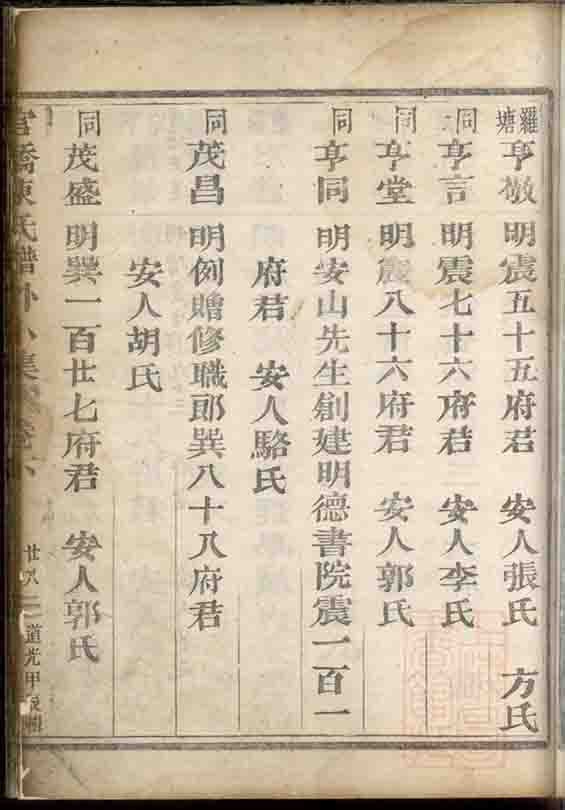 羅塘 亨敬 明震五十五府君 安人張氏 方氏
同 亨言 明震七十六府君 安人李氏
同 亨堂 明震八十六府君 安人郭氏
同 亨同 明安山先生創建明德書院震一百一
府君 安人駱氏
同 茂昌 明例贈修職郎巽八十八府君
安人胡氏
同 茂盛 明巽一百廿七府君 安人郭氏
橋陳氏譜外八集卷六
廿八 道光甲辰輯